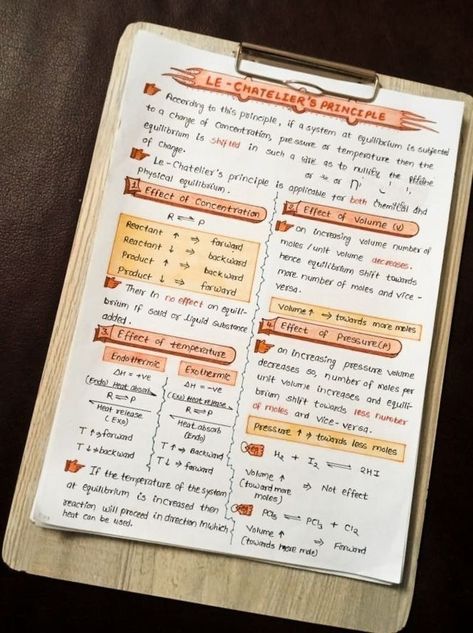 LE-CHATELIER'S PRINCIPLE
According to this principle, if a system at equilibrium is subjected
to a change of concentration, pressure or temperature then the
equilibrium is shifted in such a way as to nullify the
of change.
Le-Chatelier's principle is applicable for both chemical and
physical equilibrium.
1. Effect of Concentration
R ⇌ P
Reactant ↑ ⇒ forward
Reactant ↓ ⇒ backward
Product ↑ ⇒ backward
Product ↓ ⇒ forward
Their in no effect on equili-
brium if solid or liquid substance
added.
3. Effect of temperature
Endothermic
ΔH = +ve
(Endo) Heat absorb
R ⇌ P
Heat release
(Exo)
T ↑ ⇒ forward
T ↓ ⇒ backward
Exothermic
ΔH = -ve
(Exo) Heat release
R ⇌ P
Heat absorb
(Endo)
T ↑ ⇒ Backward
T ↓ ⇒ forward
If the temperature of the system
at equilibrium is increased then
reaction will proceed in direction in which
heat can be used.
2. Effect of Volume (V)
on increasing volume number of
moles /unit volume decreases.
hence equilibrium shift towards
more number of moles and vice-
versa.
Volume ↑ ⇒ towards more moles
4. Effect of Pressure (P)
on increasing pressure volume
decreases so, number of moles per
unit volume increases and equili-
brium shift towards less number
of moles and vice-versa.
Pressure ↑ ⇒ towards less moles
H₂ + I₂ ⇌ 2HI
Volume ↑ ⇒ Not effect
(toward more
moles)
PCl₅ ⇌ PCl₃ + Cl₂
Volume ↑ ⇒ Forward
(towards more mole)